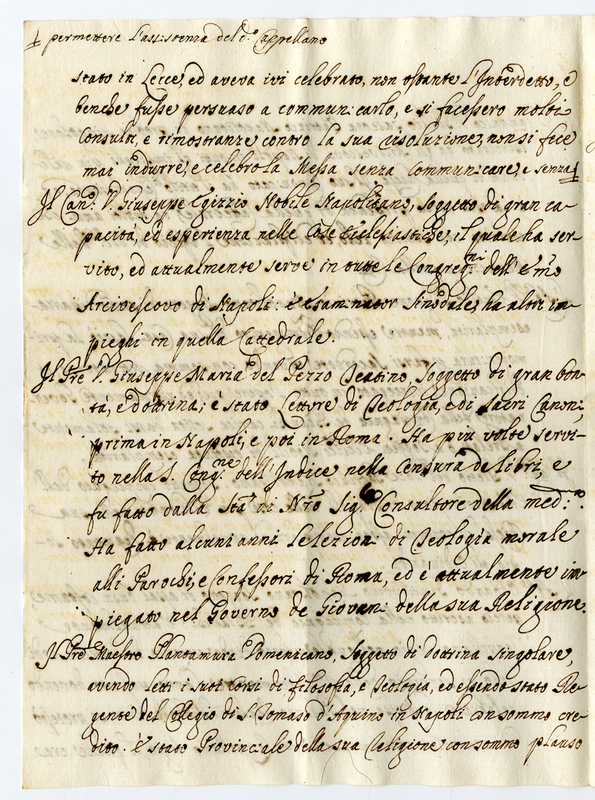 ╪ permettere l'assistenza del d.º Cappellano
stato in Lecce, ed aveva ivi celebrato, non ostante l'Interdetto, e
benche fusse persuaso a communicarlo, e si facessero molti
Consulti, e rimostranze contro la sua risoluzione, non si fece
mai indurre, e celebrò la Messa senza communicare, e senza ╪
Il Can.º D. Giuseppe Egizzio Nobile Napolitano, soggetto di gran ca-
pacità, ed esperienza nelle Cose Ecclesiastiche, il quale ha ser-
vito, ed attualmente serve in tutte le Congreg.ni dell' Em̃o
Arcivescovo di Napoli: è Esaminator Sinodale, ha altri im-
pieghi in quella Cattedrale.
Il Pre D. Giuseppe Maria del Pezzo Teatino, soggetto di gran bon-
tà, e dottrina; è stato Lettore di Teologia, e di sacri Canoni,
prima in Napoli, e poi in Roma. Ha più volte servi-
to nella S. Cong.ne dell'Indice nella censura de libri, e
fu fatto dalla Stà di Nrõ Sig.e Consultore della med.ma.
Ha fatto alcuni anni le lezioni di Teologia morale
alli Parochi, e Confessori di Roma, ed è attualmente im-
piegato nel Governo de Giovani della sua Religione.
Il Pre Maestro Plantamura Domenicano, soggetto di dottrina singolare,
avendo letti i suoi Corsi di filosofia, e Teologia, ed essendo stato Re-
gente del Collegio di S. Tomaso d'Aquino in Napoli con sommo cre-
dito. è stato Provinciale della sua Religione con sommo plauso